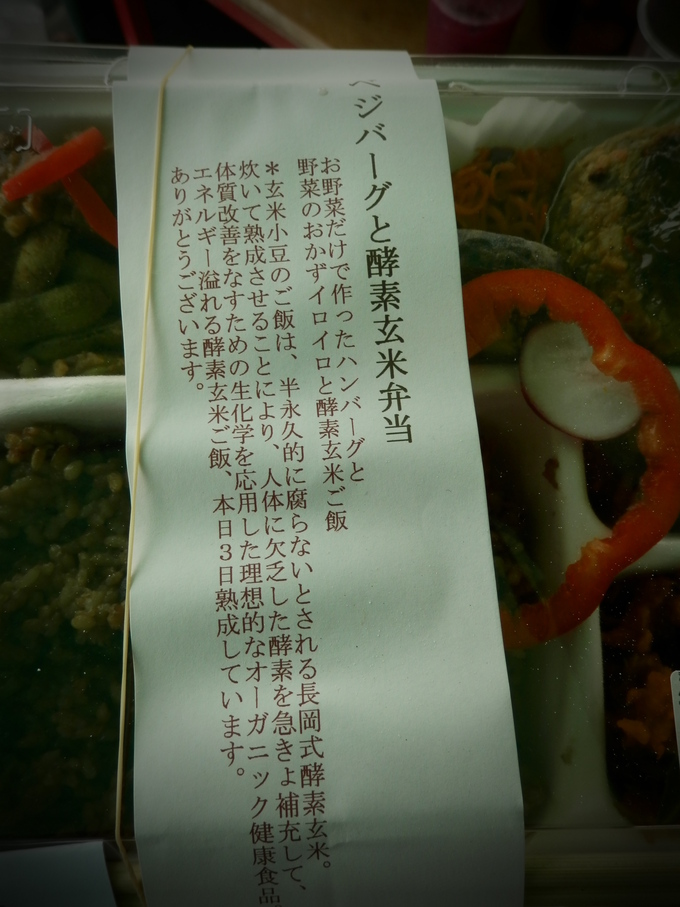 ベジバーグと酵素玄米弁当
お野菜だけで作ったハンバーグと
野菜のおかずイロイロと酵素玄米ご飯
＊玄米小豆のご飯は、半永久的に腐らないとされる長岡式酵素玄米。
炊いて熟成させることにより、人体に欠乏した酵素を急きよ補充して、
体質改善をなすための生化学を応用した理想的なオーガニック健康食品
エネルギー溢れる酵素玄米ご飯、本日３日熟成しています。
ありがとうございます。